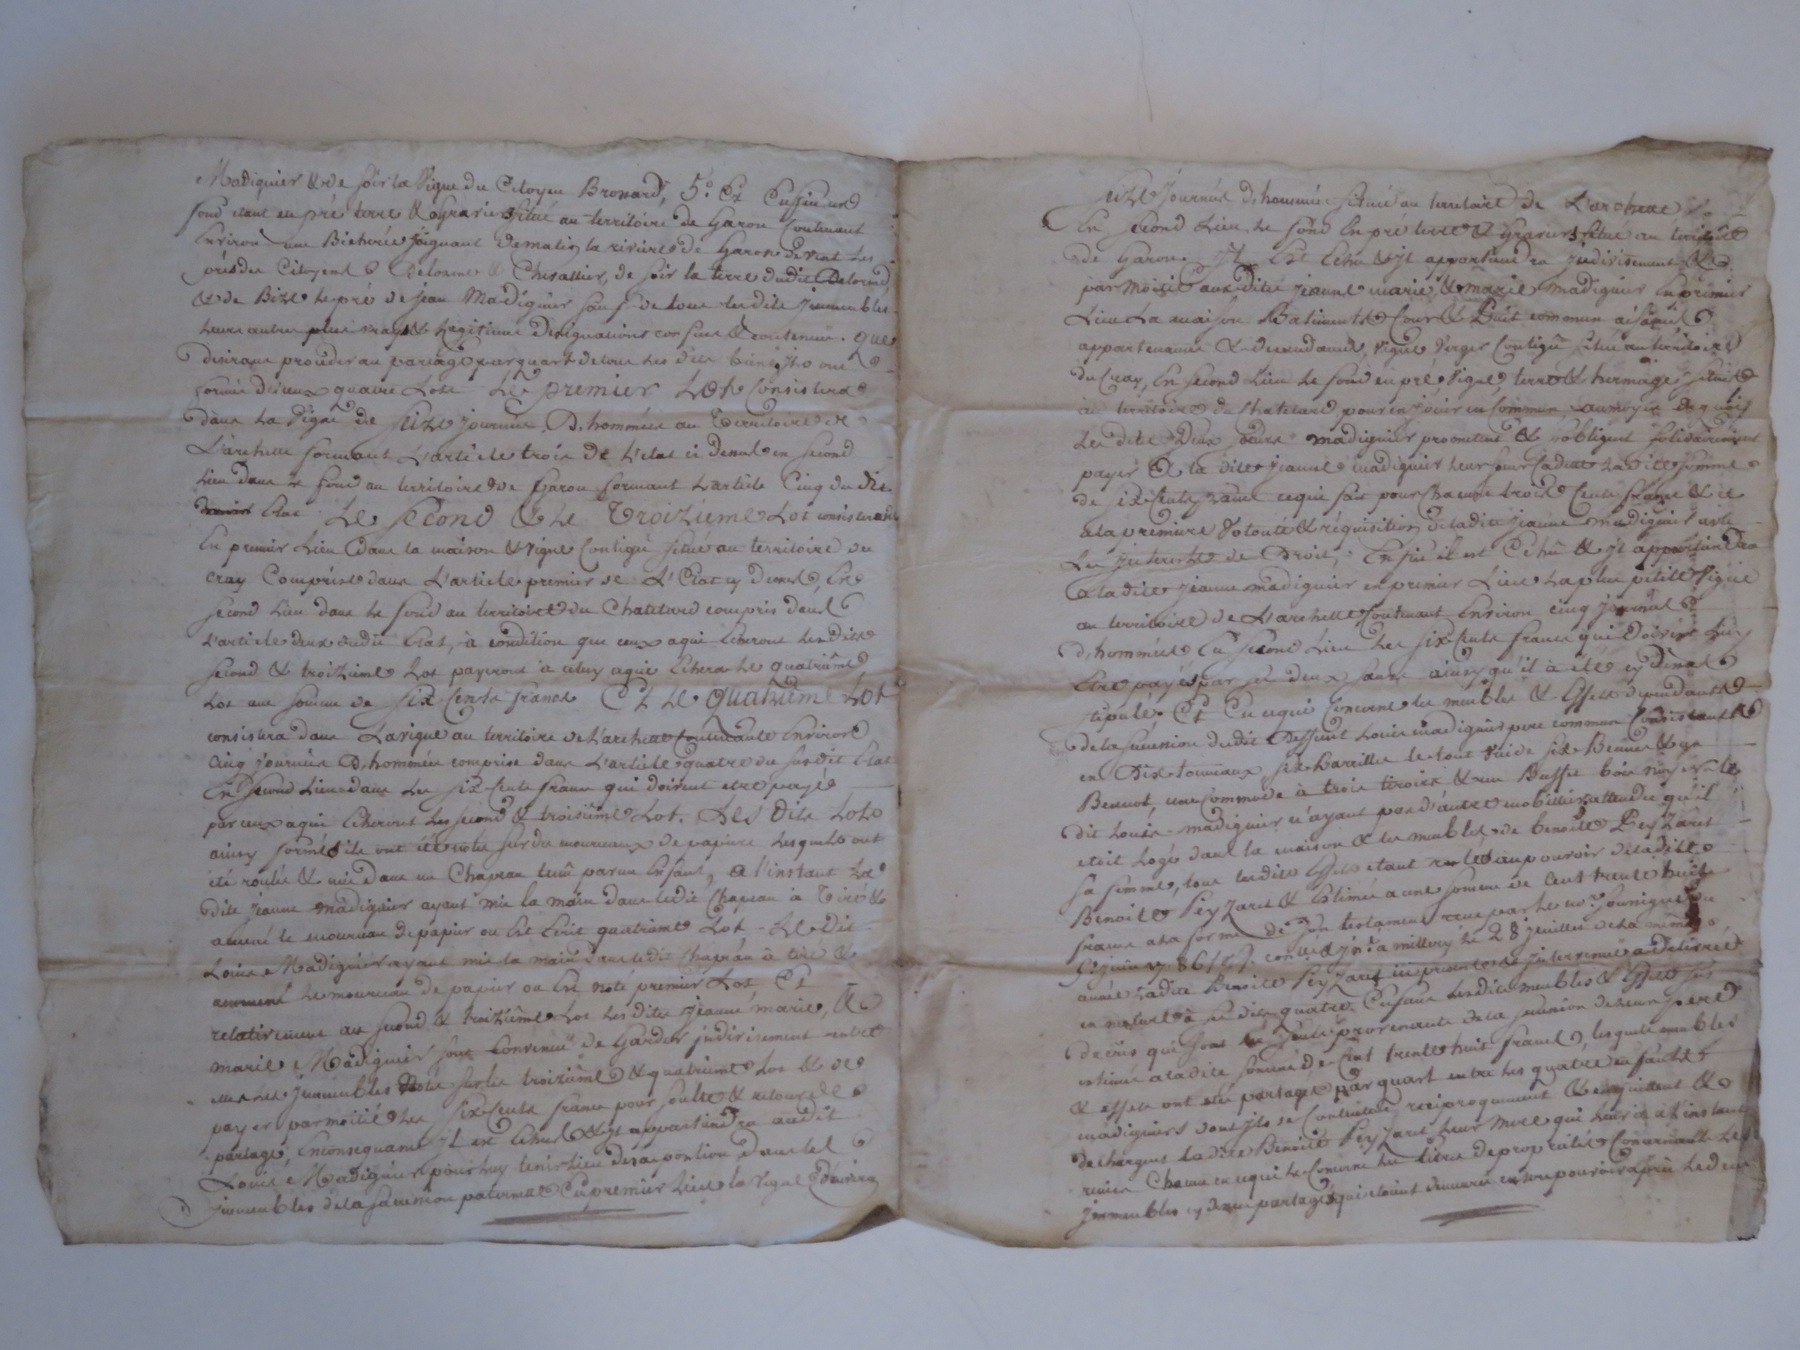 Madignier & de soir la vigne du Citoyen Brossard, 5.° Et Enfin un
fond etant en pré terre & graviers situé au territoire de Garon Contenant
Environ une Bicherée joignant de matin la riviere de Garon de vent les
prés des Citoyens Delorme & Chevallier, de soir la terre dudit Delorme
& de Bize le pré de jean Madignier sauf de tous lesdits jmmeubles
leurs autres plus vrays & legitimes designations confins & contenues. que
desirant proceder au partage par quart de tous les dits biens ils ont
formé d'iceux quatre Lots Le premier Lot Consistera
dans La vigne de seize journées D'hommées au Territoire de
L'archette formant L'article trois de L'etat ci dessus en second
Lieu dans le fond au territoire de Garon formant L'article Cinq du dit
Etat Le second & Le Troizieme Lot consisteront
En premier Lieu dans la maison & vigne Contiguë situé au territoire du
cray Comprise dans L'article premier de L'Etat cy dessus, En
second Lieu dans le fond au territoire du Chatelard compris dans
L'article deux dudit Etat, à condition que ceux a qui Echeront lesdits
second & troizieme Lot payeront à celuy a qui Echera Le quatrième
Lot une somme de six cents francs Et Le quatrieme Lot
consistera dans La vigne au territoire de L'archette Contenante Environ
Cinq journées D'hommées comprise dans L'article quatre du susdit Etat
En second Lieu dans Les six cents francs qui doivent etre payés
par ceux a qui Echeront Les second & troisième Lot. Les dits Lots
ainsy formés ils ont été notés sur du mourceaux de papiers Lesquels ont
été roulés & mis dans un Chapeau tenû par un Enfant, a l'instant La
dite Jeanne Madignier ayant mis la main dans ledit Chapeau à Tiré &
amené le mourceau de papier ou Est Ecrit quatrieme Lot - Le Dit
Louis Madignier ayant mis la main dans ledit Chapeau à tiré &
amené le mourceau de papier ou Est noté premier Lot Et
relativement au second & troizième Lot Les dites Jeanne marie, &
marie Madignier sont Convenuës de Garder jndivisement entre
elles les jmmeubles notés sur les troizième & quatrieme Lot & de
payer par moitié Les six cents francs pour soulte & retour de
partage, En consequance jl est Echus & jl appartiendra audit
Louis Madignier pour luy tenir Lieu de sa portion dans les
jmmeubles de la succession paternelle En premier Lieu la vigne d'Environ
seize journées d'hommées située au territoire de L'archette
En second Lieu, le fond en pré terre & graviers situé au territoire
de Garon. jl Est Echu & jl appartiendra jndivisement &
par Moitié aux dites jeanne marie & marie Madignier En premier
Lieu La maison Batiments Cour & Puit commun aisances
appartenances & dependances, vigne verger Contiguë situé au territoire
du Cray, En second Lieu le fond en pré vigne, terre & hermage situés
au territoire du Chatelard pour en jouir en Commun, au moyen de quoi
Les dites Deux sœurs Madignier promettent & s'obligent solidairement
payer à la dite jeanne Madignier leur sœur Cadette La dite somme
de six cents francs ce qui fait pour chacune trois cents francs & ce
a la premiere volonté & réquisition de ladite jeanne Madignier avec
Les jnterests de Droit, Enfin il est Echû & jl appartiendra
a ladite jeanne Madignier en premier Lieu La plus petite vigne
au territoire de L'archette Contenant Environ cinq journées
d'hommées En second Lieu Les six cents francs qui doivent luy
Etre payés par ses deux sœurs ainsy qu'il à été cy dessus
stipulé. Et En ce qui Concerne les meubles & Effets dependants
de la succession dudit Deffunt Louis Madignier pere commun Consistants
en Dix tonneaux six barrilles le tout vuide six Bennes & un
Bennot, une Commode à trois tiroirs & un Buffet bois noyer le
dit Louis Madignier n'ayant pas d'autre mobilier attendu qu'il
etoit Logé dans la maison & les meubles de benoite PeyZaret
sa femme, tous lesdits Effets etant restés au pouvoir de ladite
Benoite PeyZaret & Estimés a une somme de Cent trente huit
francs a la forme de son testament reçu par le no.re soussigné du
année Ladite Benoite PeyZaret jci presente & jntervenue a Delivré
en nature à ses dits quatre Enfans Lesdits meubles & Effets sus
decrits qui sont les seuls provenants de la succession de leur pere
estimés a la dite somme de Cent trente huit francs, lesquels meubles
& effets ont été partagés par quart entre les quatre enfants
Madigniers dont jls se contentent reciproquement & en quittent &
dechargent La dite Benoite PeyZaret Leur Mere qui leur a a l'instant
remis Chacun en ce qui le Concerne les titres de proprietés Concernants les
jmmeubles cy dessus partagés qui etoient demeurés en son pouvoir après le deces